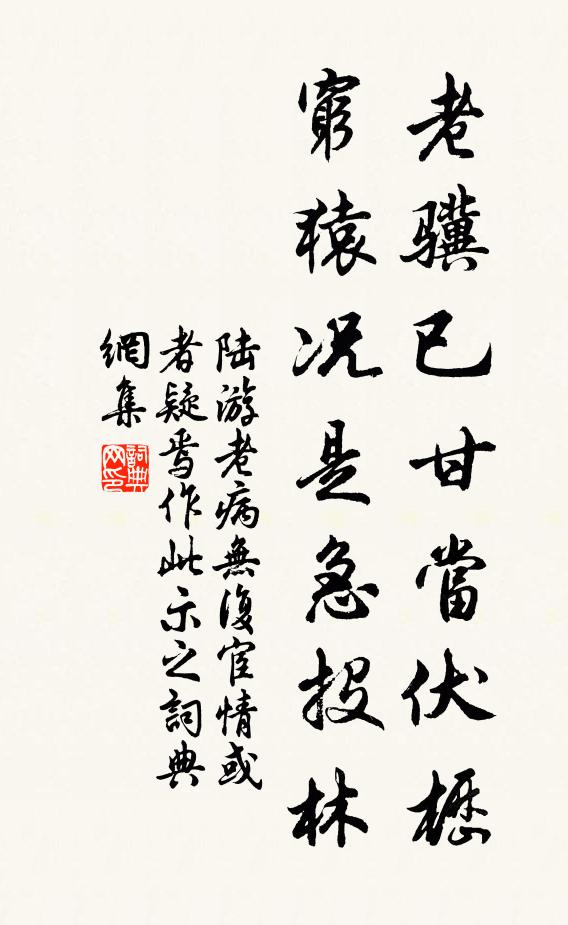 老驥已甘當伏櫪
窮猿况是急投林
陸游老病無復宦情或
者疑焉作此示之詞典
網集
詞典
网印